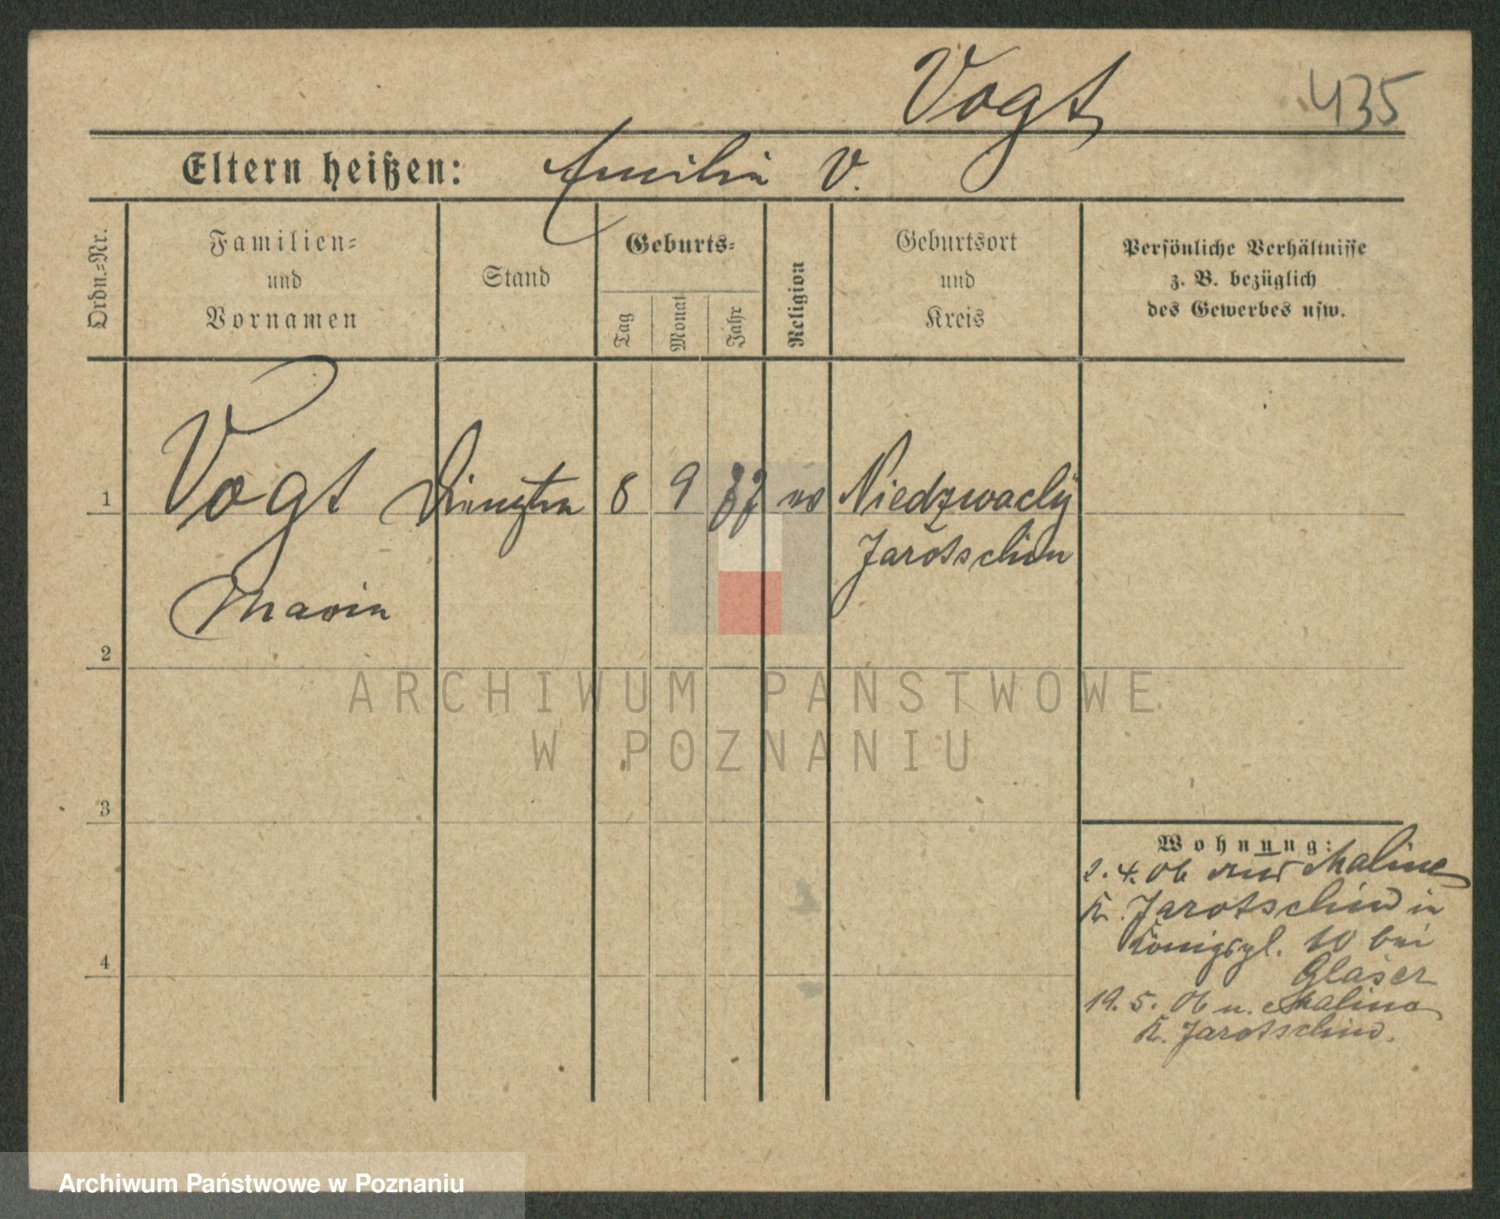 Vogt 435
Eltern heißen: Emilie V.
Ordn.-Nr.
Familien-
und
Vornamen
Stand
Geburts-
Tag
Monat
Jahr
Religion
Geburtsort
und
Kreis
Persönliche Verhältnisse
z. B. bezüglich
des Gewerbes usw.
1 Vogt 8 9 77 ev Niedzwady
Jarotschin
Marie
2
3
4
Wohnung:
2. 4. 06 aus Maline
Kr. Jarotschin in
Königspl. 10 bei
Glaser
19. 5. 06 n. Malina
K. Jarotschin.
ARCHIWUM PAŃSTWOWE
W POZNANIU
Archiwum Państwowe w Poznaniu